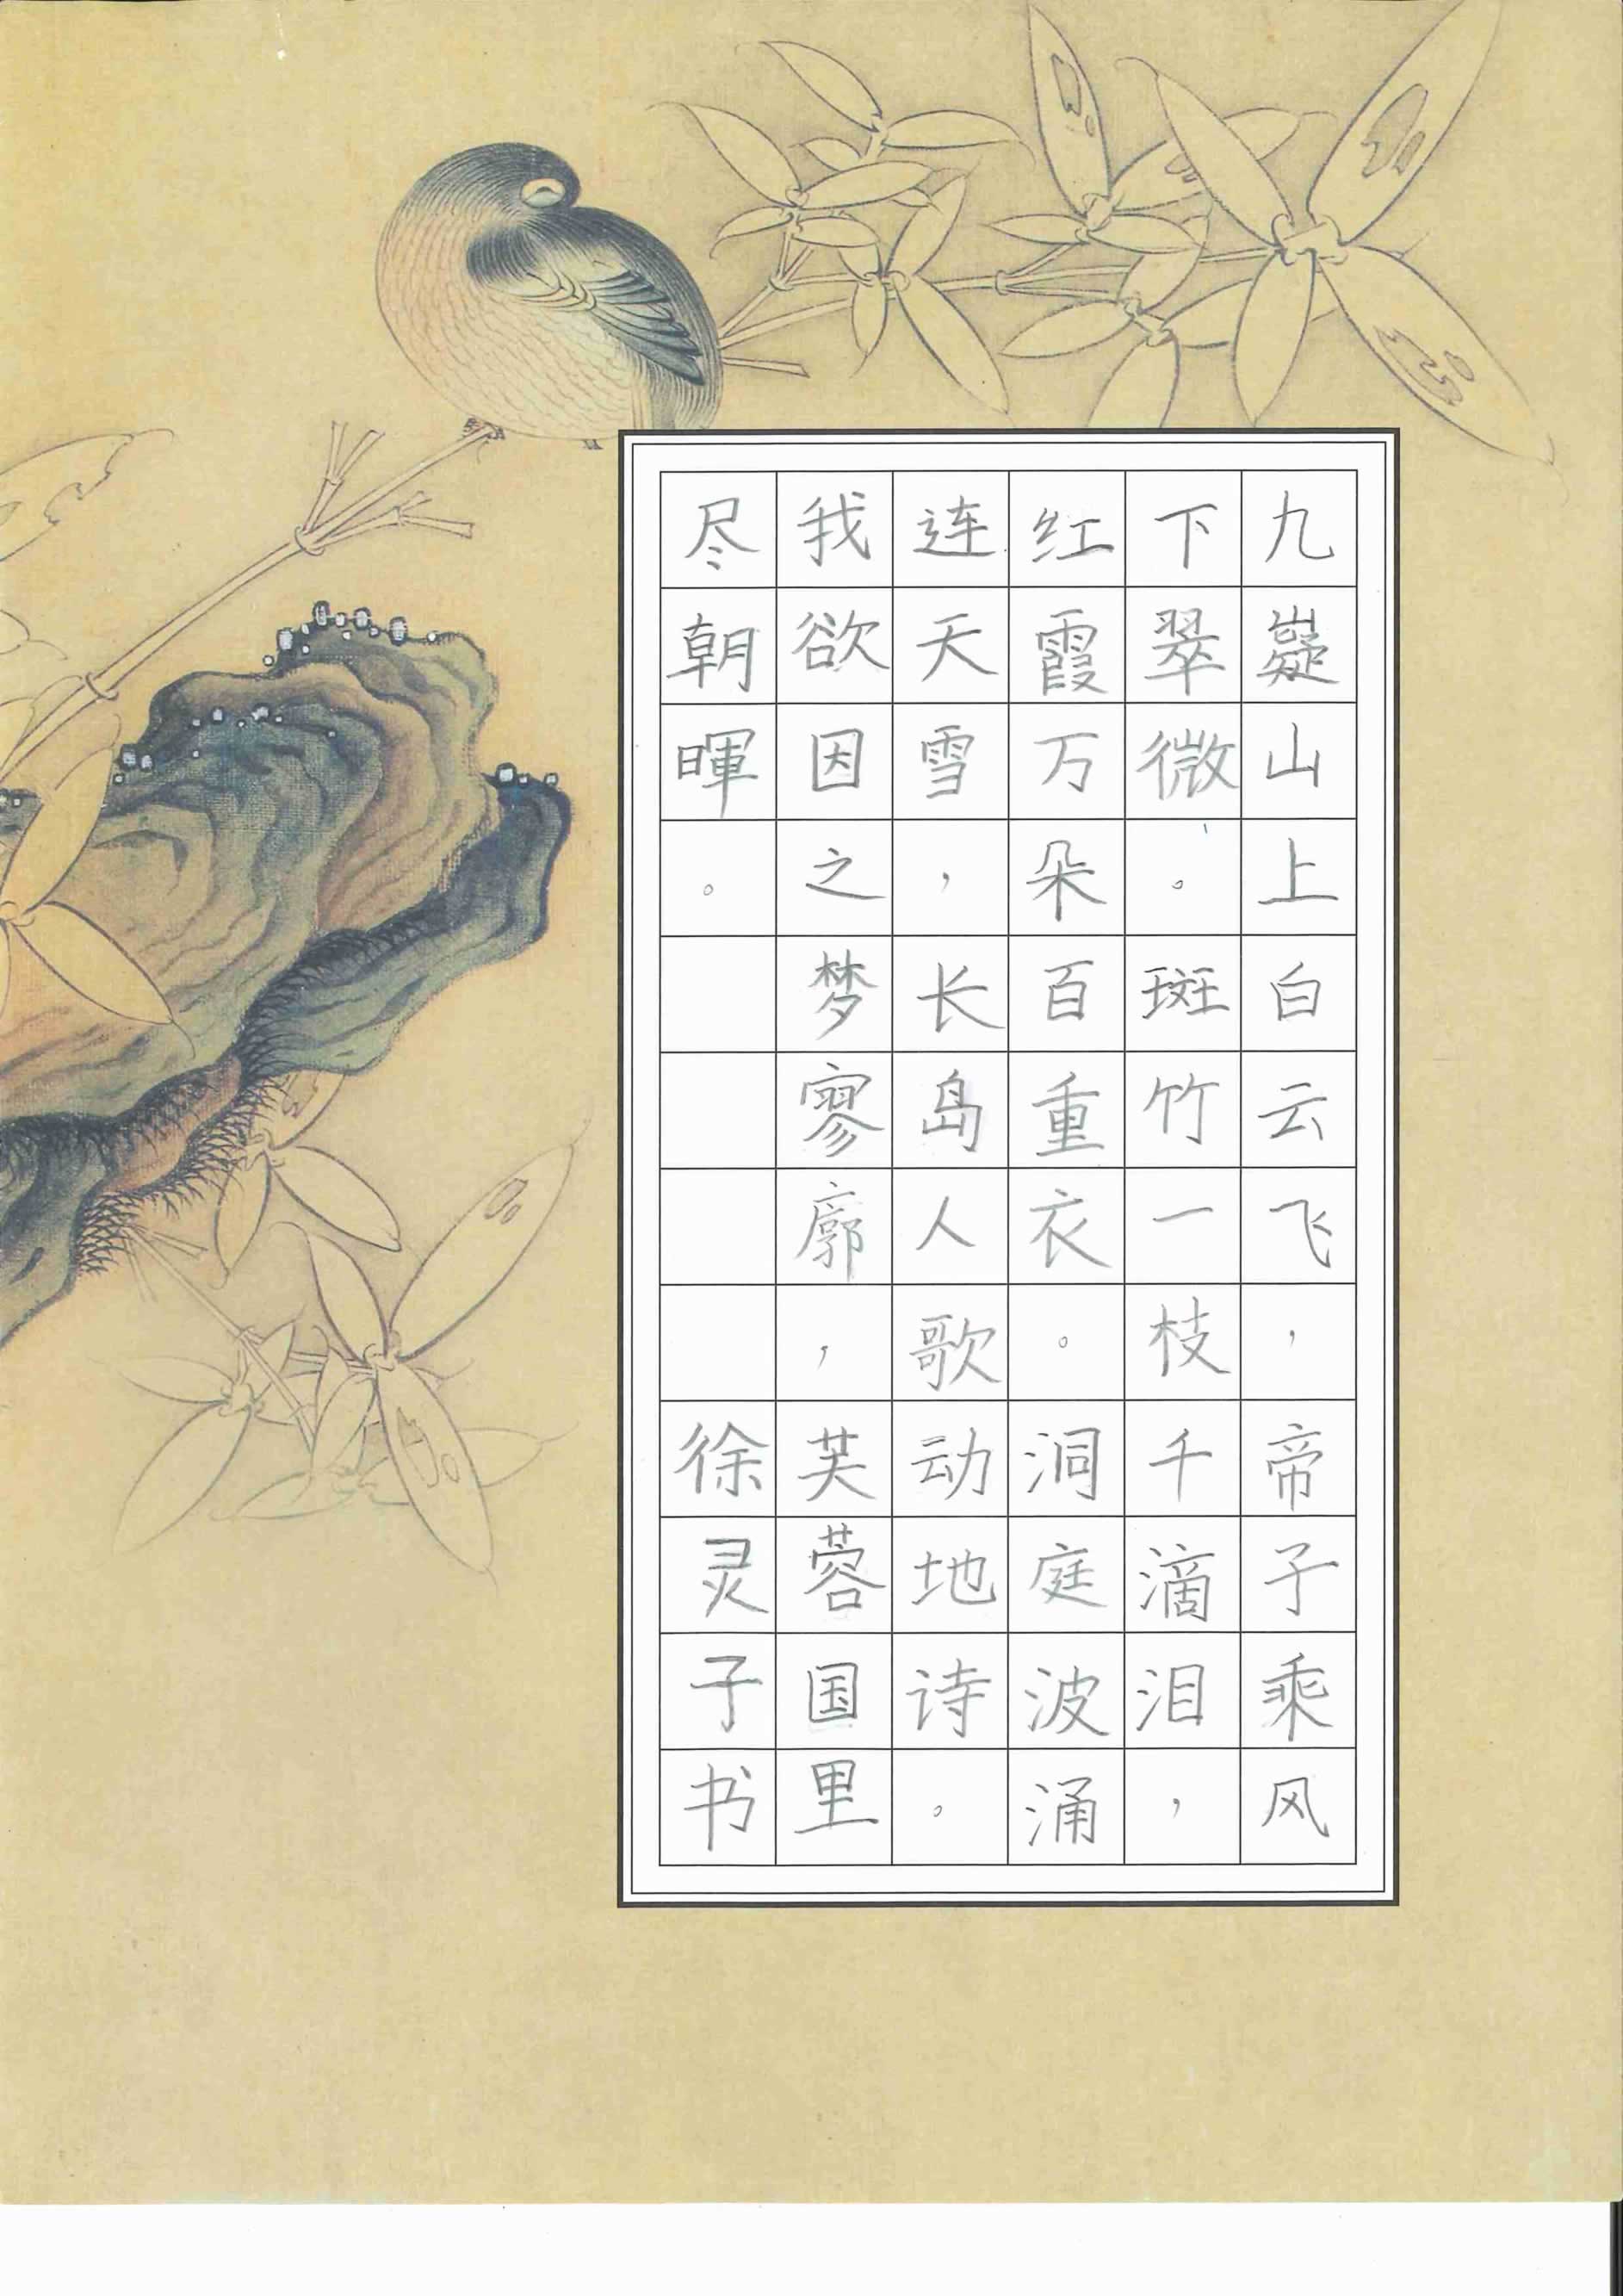 九嶷山上白云飞，帝子乘风
下翠微。斑竹一枝千滴泪，
红霞万朵百重衣。洞庭波涌
连天雪，长岛人歌动地诗。
我欲因之梦寥廓，芙蓉国里
尽朝暉。徐灵子书